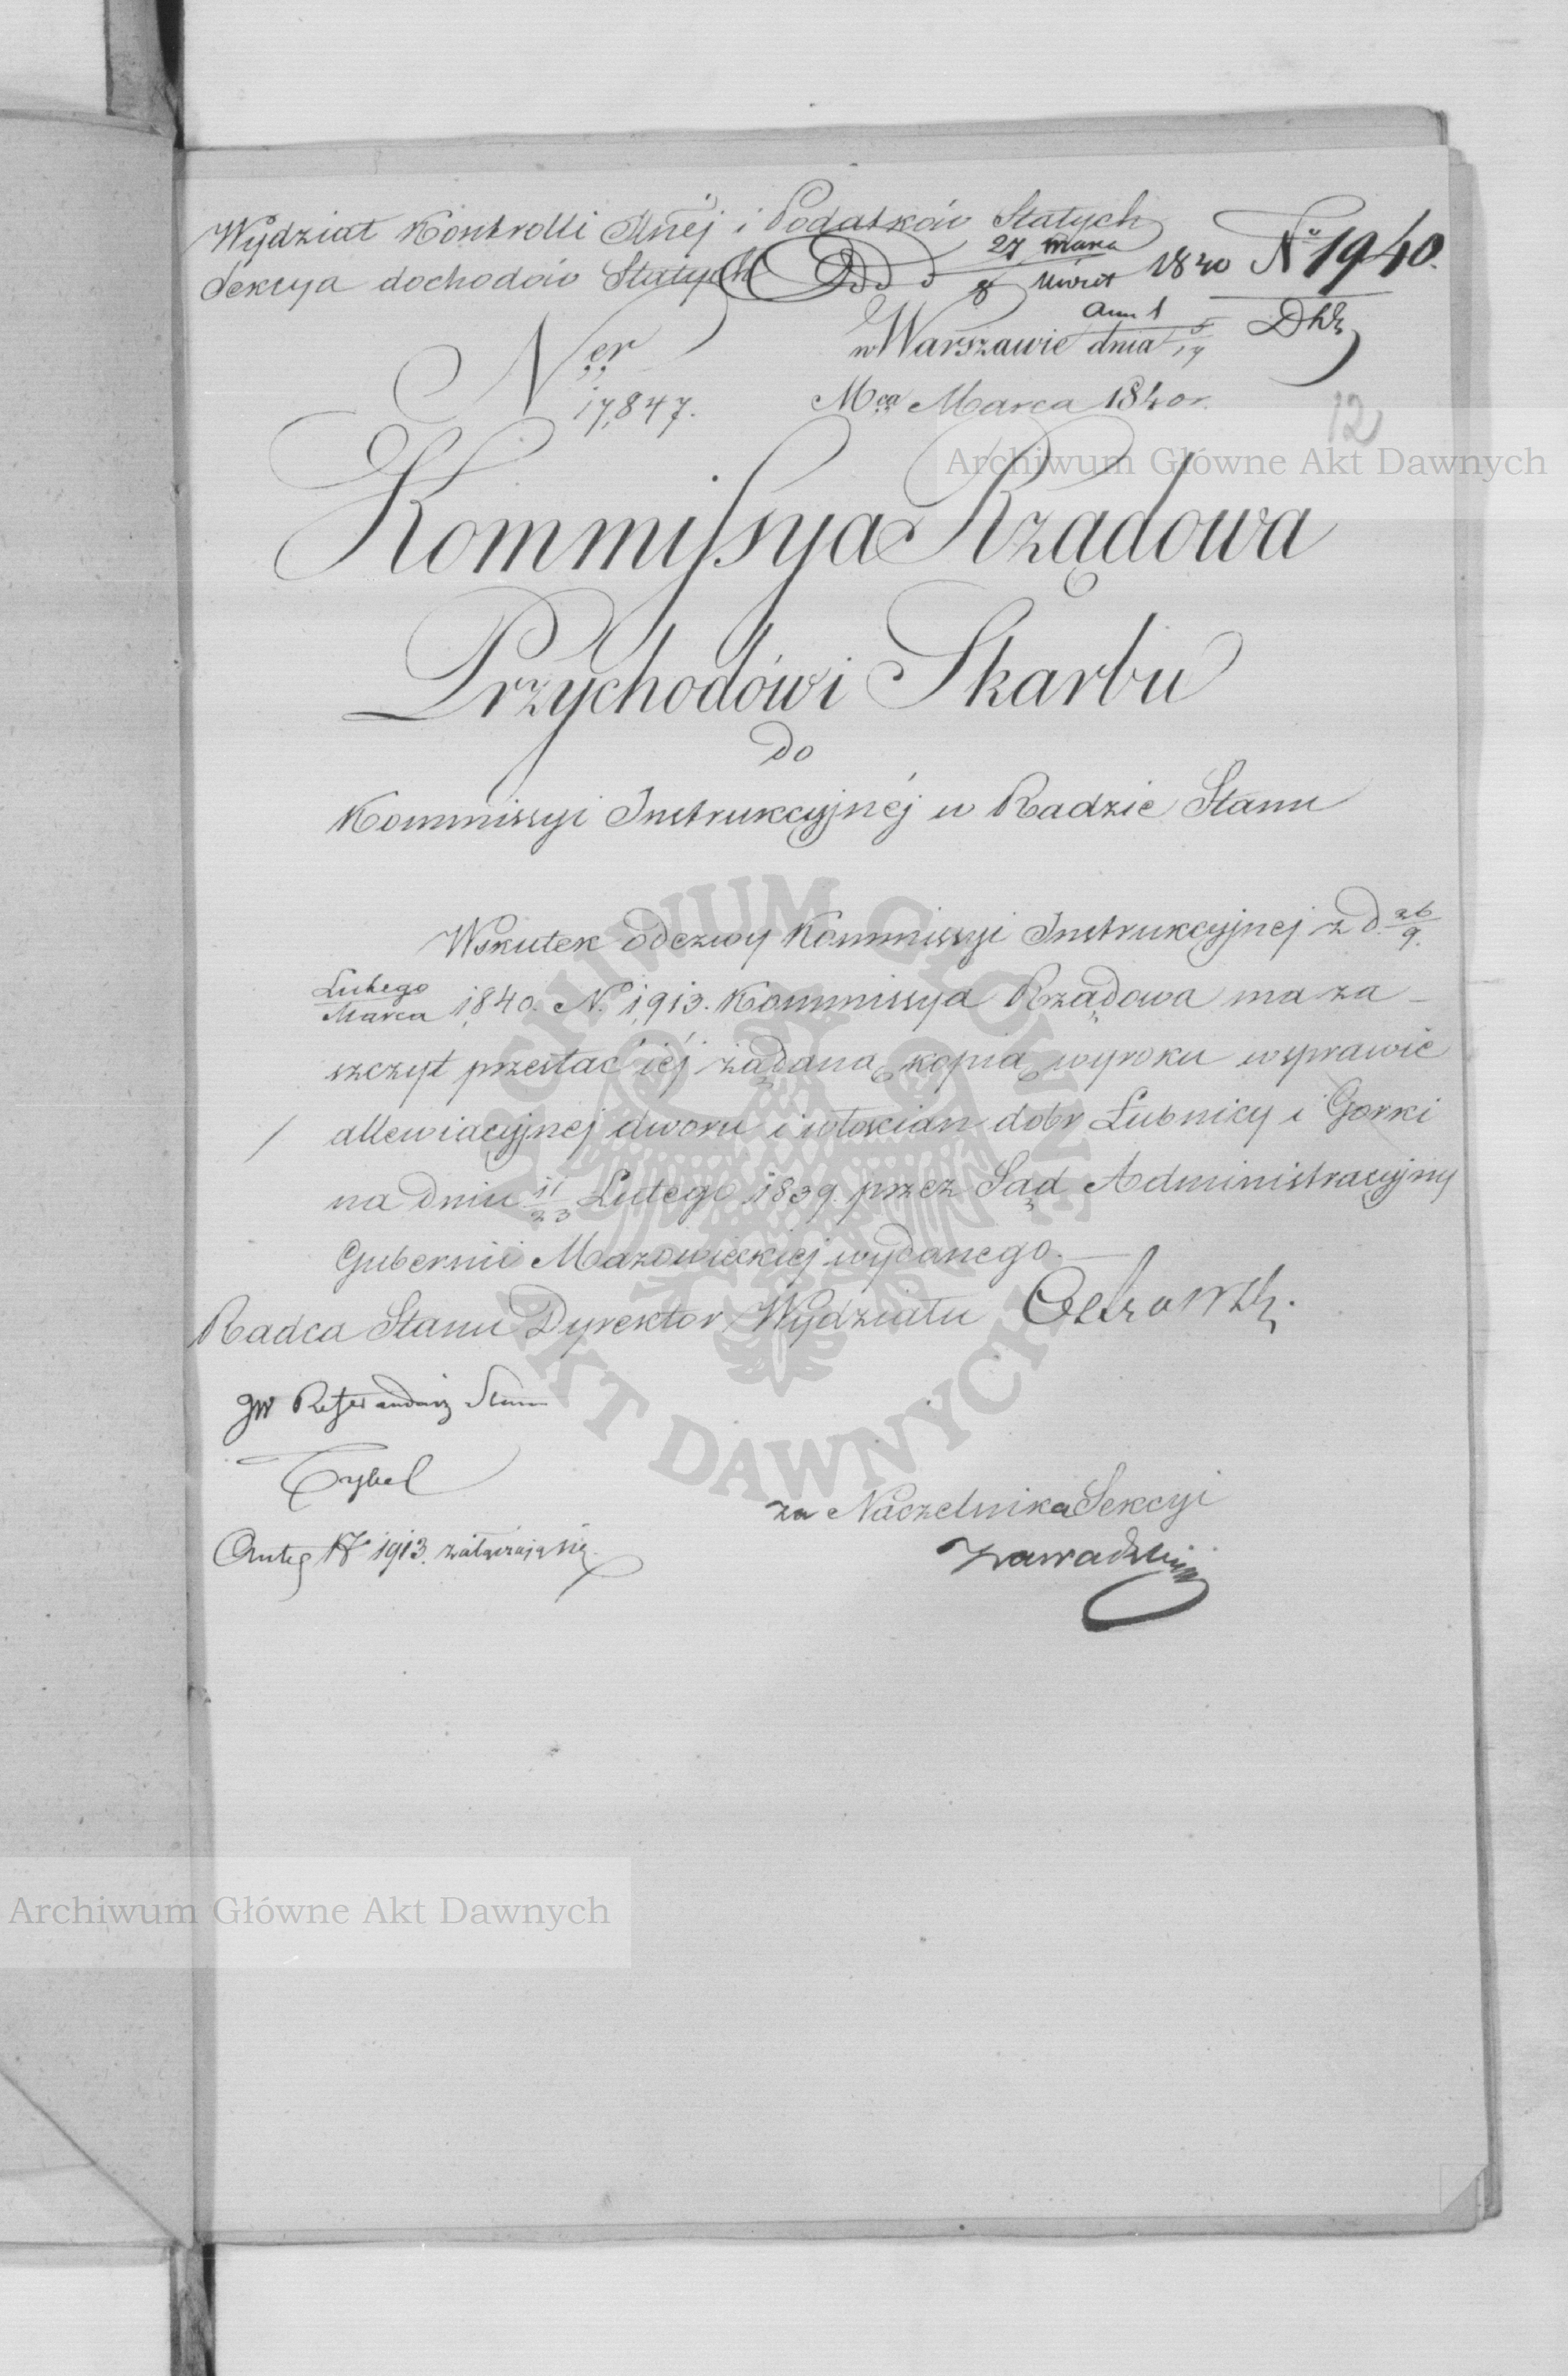 Wydział Kontrolli Ślnéj i Podatków Stałych
Sekcya dochodów Stałych
27 marca 1840 Nº 1940.
8
Ner
17,847.
w Warszawie dnia 5/17
Mca Marca 1840 r.
12
Archiwum Główne Akt Dawnych
Kommissya Rządowa
Przychodów i Skarbu
do
Kommissyi Instrukcyjnéj w Radzie Stanu
Wskutek odezwy Kommissyi Instrukcyjnej z d. 26/9.
Lutego/Marca 1840. N. 1,913. Kommissya Rządowa ma za-
szczyt przesłać iéj żądaną kopią wyroku w sprawie
allewiacyjnej dworu i włościan dobr Lubnicy i Gorki
na dniu 11/23 Lutego 1839. przez Sąd Administracyjny
Gubernii Mazowieckiej wydanego.
Radca Stanu Dyrektor Wydziału
Referendarz Stanu
za Naczelnika Sekcyi
Zawadzki
Nº 1913. załączają się.
ARCHIWUM GŁÓWNE AKT DAWNYCH
Archiwum Główne Akt Dawnych